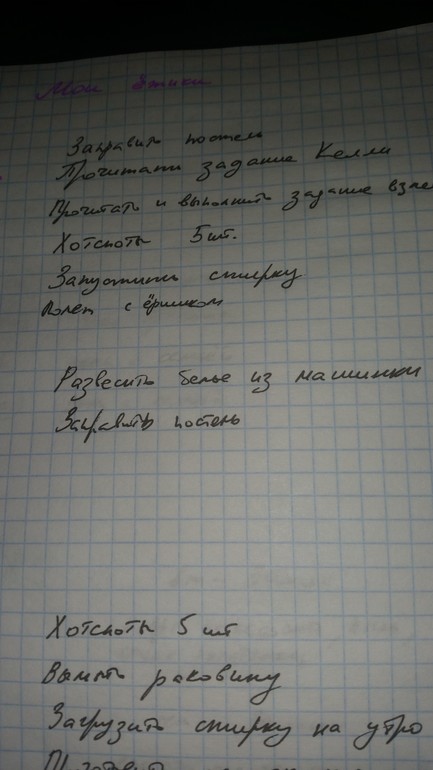 Мои
Заправить постель
Прочитать задание Келли
Прочитать и выполнить задание
Хотспоты 5шт.
Запустить стирку
с ёршиком
Развесить белье из машинки
Заправить постель
Хотспоты 5 шт
Вымыть раковину
Загрузить стирку на утро